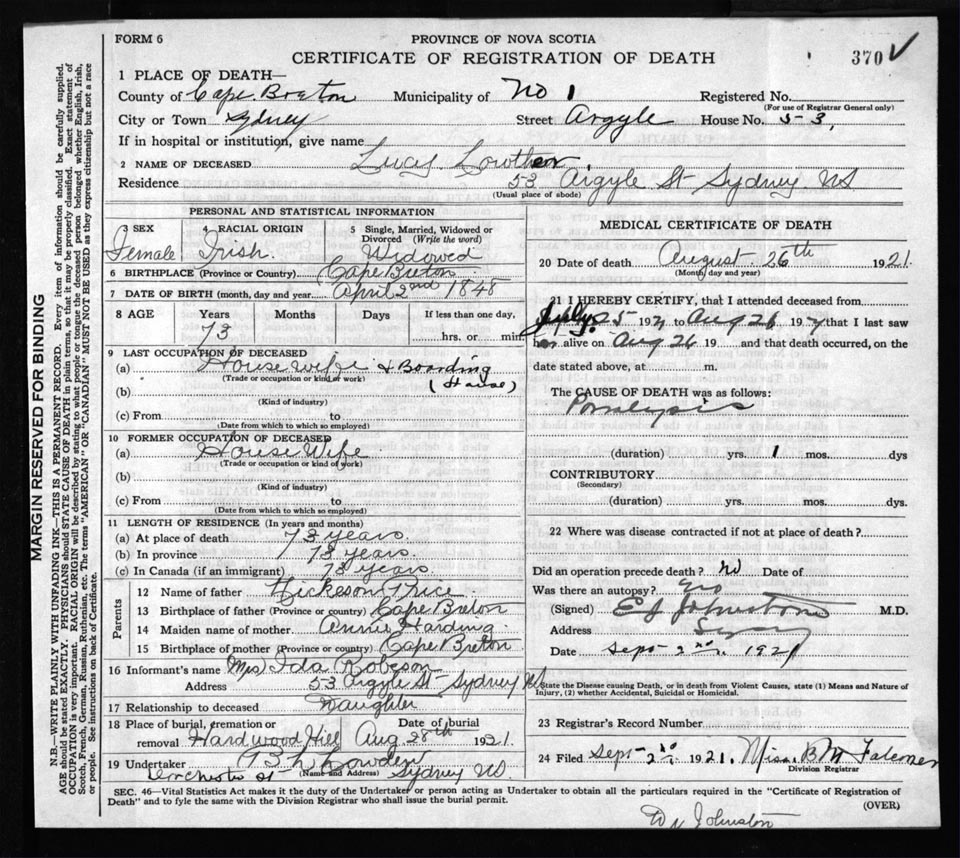 FORM 6
PROVINCE OF NOVA SCOTIA
CERTIFICATE OF REGISTRATION OF DEATH
370
1 PLACE OF DEATH—
County of Cape Breton Municipality of No 1 Registered No.
(For use of Registrar General only)
City or Town Sydney Street Argyle House No. 53,
If in hospital or institution, give name
2 NAME OF DECEASED Lucy Lowther.
Residence 53 Argyle St Sydney NS
(Usual place of abode)
PERSONAL AND STATISTICAL INFORMATION
3 SEX Female
4 RACIAL ORIGIN Irish.
5 Single, Married, Widowed or Divorced (Write the word) Widowed
6 BIRTHPLACE (Province or Country) Cape Breton
7 DATE OF BIRTH (month, day and year) April 2nd 1848
8 AGE Years Months Days If less than one day,
73 hrs. or min.
9 LAST OCCUPATION OF DECEASED
(a) House wife & Boarding (House)
(Trade or occupation or kind of work)
(b)
(Kind of industry)
(c) From to
(Date from which to which so employed)
10 FORMER OCCUPATION OF DECEASED
(a) House Wife
(Trade or occupation or kind of work)
(b)
(Kind of industry)
(c) From to
(Date from which to which so employed)
11 LENGTH OF RESIDENCE (In years and months)
(a) At place of death 73 years
(b) In province 73 years.
(c) In Canada (if an immigrant) 73 years
Parents
12 Name of father Hickeson Price
13 Birthplace of father (Province or country) Cape Breton
14 Maiden name of mother Annie Harding
15 Birthplace of mother (Province or country) Cape Breton
16 Informant's name Mrs Ida Robeson
Address 53 Argyle St Sydney NS
17 Relationship to deceased Daughter
18 Place of burial, cremation or removal Hardwood Hill Date of burial Aug 28th 1921.
19 Undertaker Bowden
Dorchester St (Name and Address) Sydney NS.
MEDICAL CERTIFICATE OF DEATH
20 Date of death August 26th 1921.
(Month, day and year)
21 I HEREBY CERTIFY, that I attended deceased from
July 25 1921 to Aug 26 1921 that I last saw
her alive on Aug 26 19 and that death occurred, on the
date stated above, at m.
The CAUSE OF DEATH was as follows:
Paralysis
(duration) yrs. 1 mos. dys
CONTRIBUTORY
(Secondary)
(duration) yrs. mos. dys.
22 Where was disease contracted if not at place of death?
Did an operation precede death? No Date of
Was there an autopsy?
(Signed) E J Johnstone M.D.
Address Sydney
Date Sept 2nd. 1921
State the Disease causing Death, or in death from Violent Causes, state (1) Means and Nature of Injury, (2) whether Accidental, Suicidal or Homicidal.
23 Registrar's Record Number
24 Filed Sept 2nd 1921. Miss B M Falconer
Division Registrar
SEC. 46—Vital Statistics Act makes it the duty of the Undertaker or person acting as Undertaker to obtain all the particulars required in the "Certificate of Registration of
Death" and to fyle the same with the Division Registrar who shall issue the burial permit.
(OVER)
Dr Johnston
MARGIN RESERVED FOR BINDING
N.B.—WRITE PLAINLY WITH UNFADING INK—THIS IS A PERMANENT RECORD. Every item of information should be carefully supplied.
AGE should be stated EXACTLY. PHYSICIANS should STATE CAUSE OF DEATH in plain terms, so that it may be properly classified. Exact statement of
OCCUPATION is very important. RACIAL ORIGIN will be described by stating to what people or tongue the deceased person belonged whether English, Irish,
Scotch, French, German, Russian, Ruthenian, etc. The terms "AMERICAN" OR "CANADIAN" MUST NOT BE USED as they express citizenship but not a race
or people. See instructions on back of Certificate.